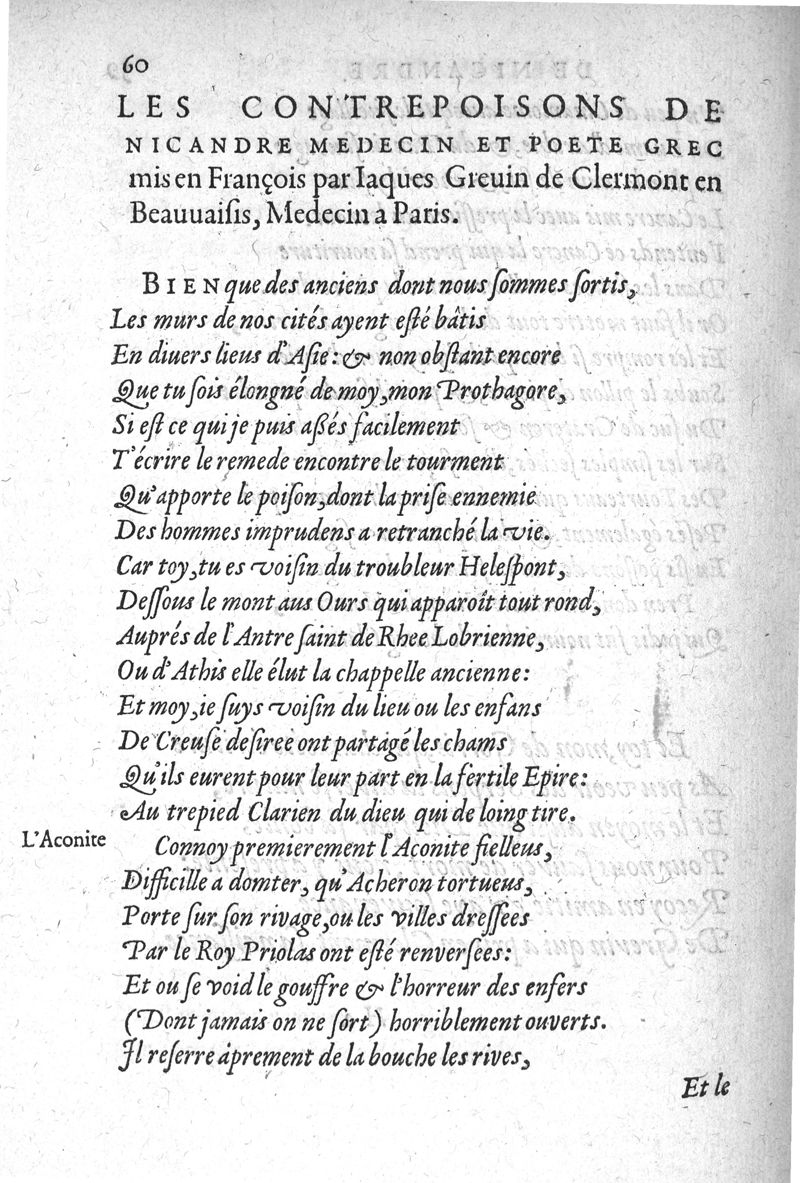 60
LES CONTREPOISONS DE
NICANDRE MEDECIN ET POETE GREC
mis en François par Iaques Greuin de Clermont en
Beauuaiſis, Medecin a Paris.
BIEN que des anciens dont nous ſommes ſortis,
Les murs de nos cités ayent eſté bâtis
En diuers lieus d'Aſie: & non obſtant encore
Que tu ſois élongné de moy, mon Prothagore,
Si eſt ce qui je puis aßés facilement
T'écrire le remede encontre le tourment
Qu'apporte le poiſon, dont la priſe ennemie
Des hommes imprudens a retranché la vie.
Car toy, tu es voiſin du troubleur Heleſpont,
Deſſous le mont aus Ours qui apparoît tout rond,
Auprés de l'Antre ſaint de Rhee Lobrienne,
Ou d'Athis elle élut la chappelle ancienne:
Et moy, ie ſuys voiſin du lieu ou les enfans
De Creuſe deſiree ont partagé les chams
Qu'ils eurent pour leur part en la fertile Epire:
Au trepied Clarien du dieu qui de loing tire.
L'Aconite
Connoy premierement l'Aconite fielleus,
Difficille a domter, qu'Acheron tortueus,
Porte ſur ſon rivage, ou les villes dreſſées
Par le Roy Priolas ont eſté renverſees:
Et ou ſe void le gouffre & l'horreur des enfers
(Dont jamais on ne ſort) horriblement ouverts.
Il reſerre âprement de la bouche les rives,
Et le